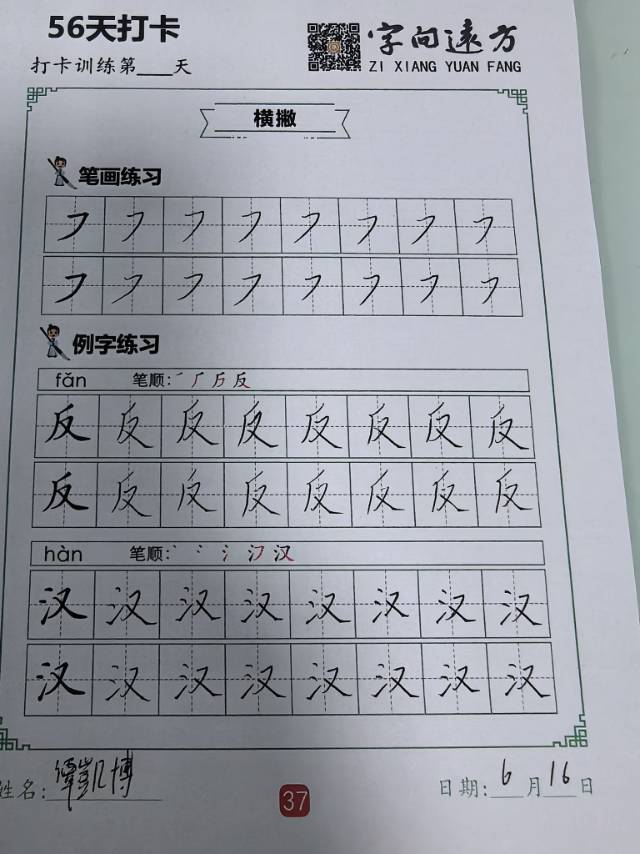 56天打卡
字向远方
打卡训练第____天
ZI XIANG YUAN FANG
横撇
笔画练习
㇇ ㇇ ㇇ ㇇ ㇇ ㇇ ㇇ ㇇
㇇ ㇇ ㇇ ㇇ ㇇ ㇇ ㇇ ㇇
例字练习
fǎn 笔顺: 反
反 反 反 反 反 反 反 反
反 反 反 反 反 反 反 反
hàn 笔顺: 氵 汉
汉 汉 汉 汉 汉 汉 汉 汉
汉 汉 汉 汉 汉 汉 汉 汉
姓名: 凯博
37
日期: 6 月 16 日